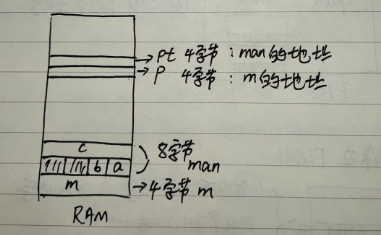 pt 4字节:man的地址
P 4字节:m的地址
c
8字节
man
b a
m
4字节 m
RAM